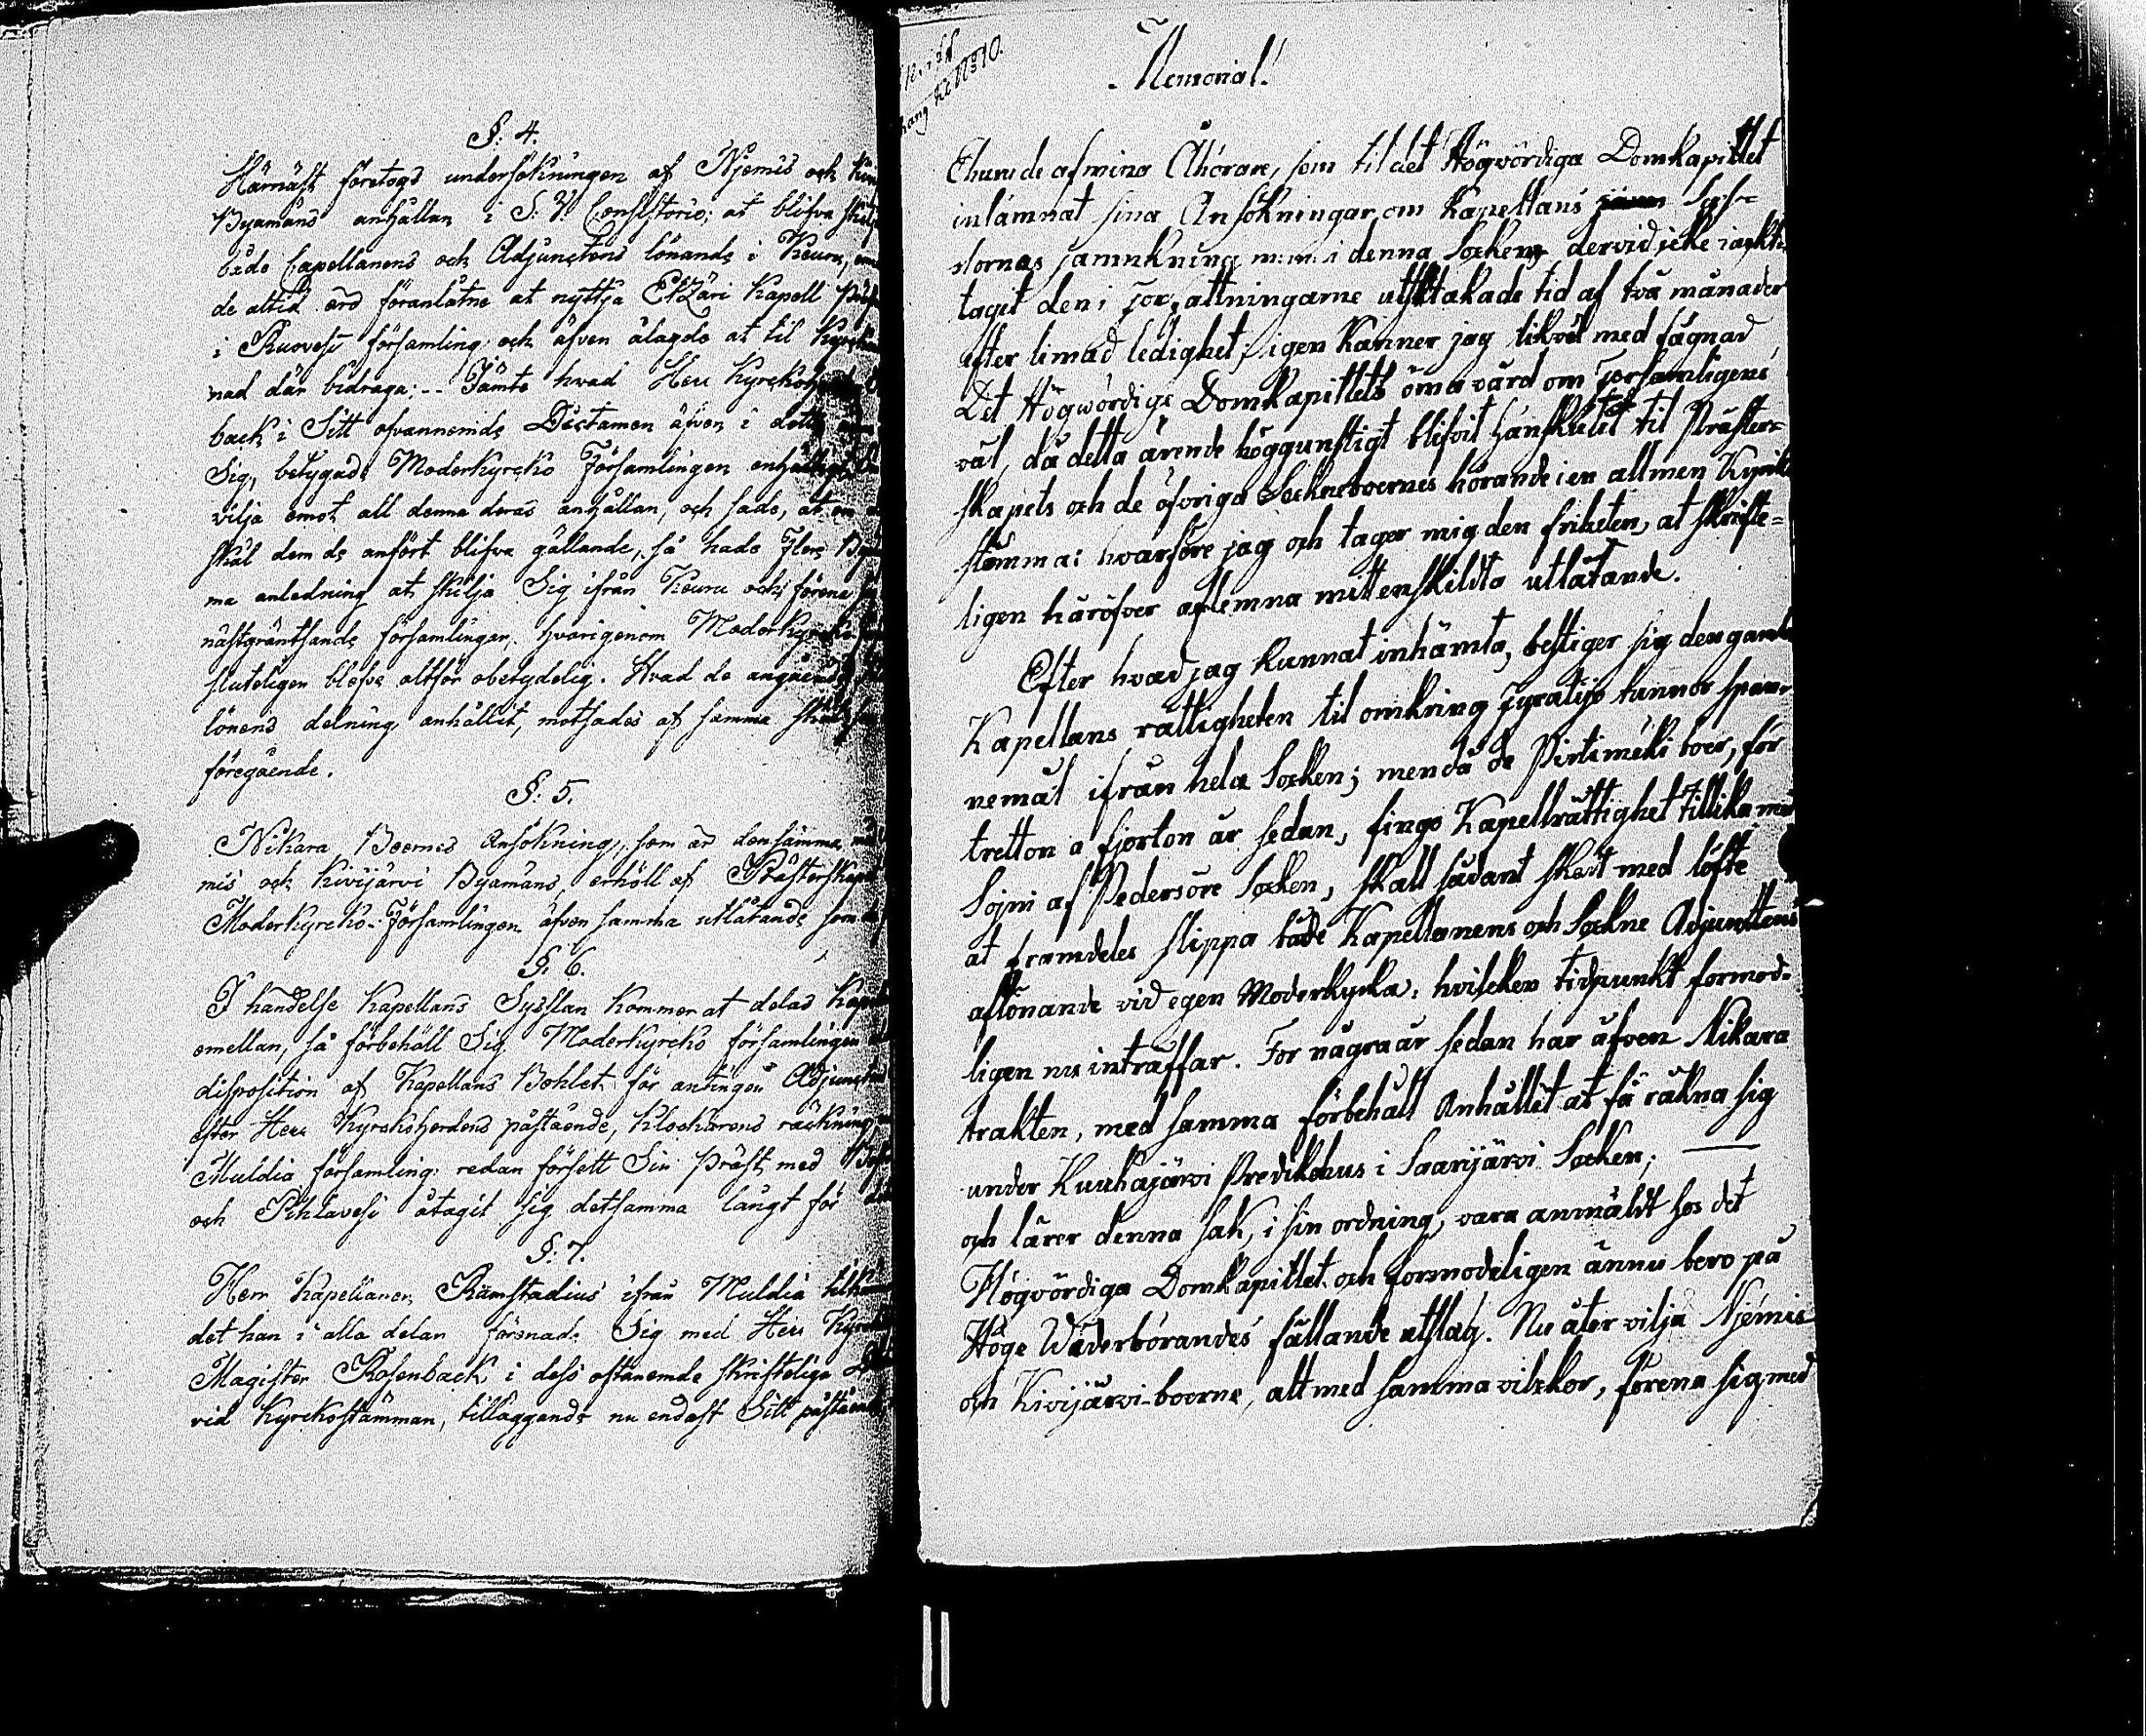 §. 4.
Härnäst företogs undersökningen af Njemis och
Byamäns anhållan i S. V. Consistorio: at blifva
både Capellanens och Adjunctens lönande i Keuru,
de altid äro föranlåtne at nyttja Etzäri Kapell
i Ruovesi församling och äfven ålagde at til
nad där bidraga; -- Jämte hvad Herr
back i Sitt ofvannemde Dictamen äfven i detta
Sig, betygade Moderkyrcko Församlingen
vilja emot all denna deras anhållan, och sade, at om
skäl dem de anfört blifva gällande, så hade Flere
ma anledning at skilja Sig ifrån Keuru och förena
nästgräntsande församlingar, hvarigenom
sluteligen blefve altför obetydelig. Hvad de angående
lönens delning anhållit, motsades af samma skäl
föregående.
§. 5.
Nikara Boernes Ansökning, som är densamma
mis och Kivijärvi Byamäns, erhöll af
Moderkyrcko-Församlingen äfven samma utlåtande som
§. 6.
I händelse Kapellans Sysslan kommer at delas
emellan, så förbehöll Sig Moderkyrcko församlingen
disposition af Kapellans Bohlet för antingen
efter Herr Kyrckoherdens påstående, Klockarens räckning
Muldia församling redan försett Sin Präst med
och Pihlavesi åtagit sig detsamma långt för
§. 7.
Herr Kapellanen Rämstadius ifrån Muldia
det han i alla delar förenade Sig med Herr
Magister Rosenback i dess oftanemde skrifteliga
vid Kyrckostämman, tilläggande nu endast Sitt påstående
N:o 10.
Memorial!
Ehuru de af mina Åhörare, som til det Högvördiga Domkapittlet
inlämnat sina Ansökningar om Kapellans Sys-
slornas jämnkning m:m: i denna Socken, dervid icke iackt-
tagit den i Författningarne utstakade tid af två månader
efter timad ledighet; igenkänner jag likväl med fägnad
Det Högwördige Domkapittlets öma vård om Församligens
väl, då detta ärende höggunstigt blifvit hänskutet til Präster-
skapets och de öfvriga Sockneboernes hörande i en allmen
stämma: hvarföre jag och tager mig den friheten, at skrifte-
ligen häröfver aflemna mitt enskildta utlåtande.
Efter hvad jag kunnat inhämta, bestiger sig den gamla
Kapellans rättigheten til omkring Fyratijo tunnor span-
nemål ifrån hela Socken; men då de Pirtimäki boer, för
tretton a fjorton år sedan, fingo Kapellrättighet tillika med
Sojni af Pedersöre Socken, skall sådant skett med löfte
at framdeles slippa både Kapellanens och Sockne Adjunctens
aflönande vid egen Moderkyrka: hvilcken tidpunkt förmod-
ligen nu inträffar. För några år sedan har äfven Nikara
trakten, med samma förbehåll Anhållit at få räkna sig
under Kuuhajärvi Predikohus i Saarijärvi Socken;
och lärer denna sak, i sin ordning, vara anmäldt hos det
Högvördiga Domkapittlet och förmodeligen ännu bero på
Höge Wederbörandes fällande utslag. Nu åter vilja Njemis
och Kivijärvi-boerne, allt med samma vilckor, förena sig med